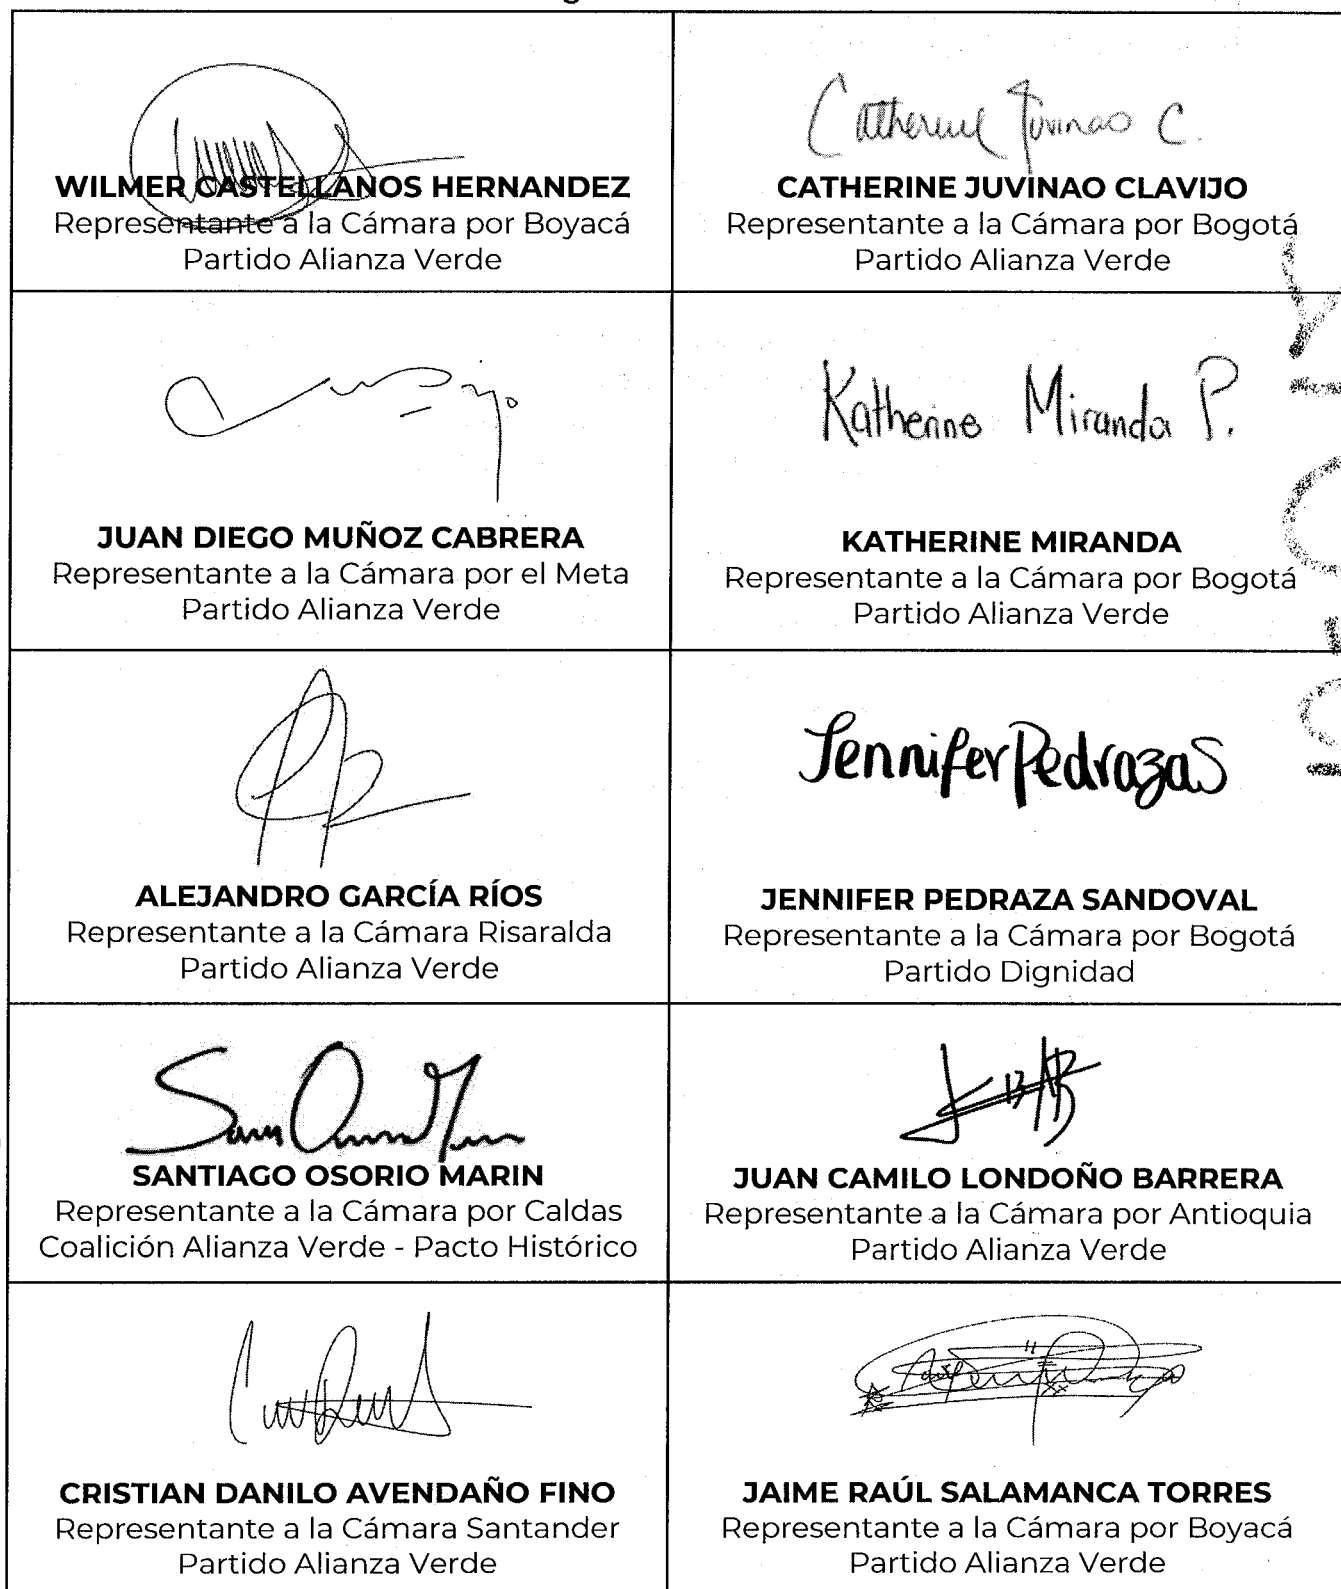 Catherine Juvinao C.
WILMER CASTELLANOS HERNANDEZ
Representante a la Cámara por Boyacá
Partido Alianza Verde
CATHERINE JUVINAO CLAVIJO
Representante a la Cámara por Bogotá
Partido Alianza Verde
Katherine Miranda P.
JUAN DIEGO MUÑOZ CABRERA
Representante a la Cámara por el Meta
Partido Alianza Verde
KATHERINE MIRANDA
Representante a la Cámara por Bogotá
Partido Alianza Verde
Jennifer Pedraza S
ALEJANDRO GARCÍA RÍOS
Representante a la Cámara Risaralda
Partido Alianza Verde
JENNIFER PEDRAZA SANDOVAL
Representante a la Cámara por Bogotá
Partido Dignidad
SANTIAGO OSORIO MARIN
Representante a la Cámara por Caldas
Coalición Alianza Verde - Pacto Histórico
JUAN CAMILO LONDOÑO BARRERA
Representante a la Cámara por Antioquia
Partido Alianza Verde
CRISTIAN DANILO AVENDAÑO FINO
Representante a la Cámara Santander
Partido Alianza Verde
JAIME RAÚL SALAMANCA TORRES
Representante a la Cámara por Boyacá
Partido Alianza Verde